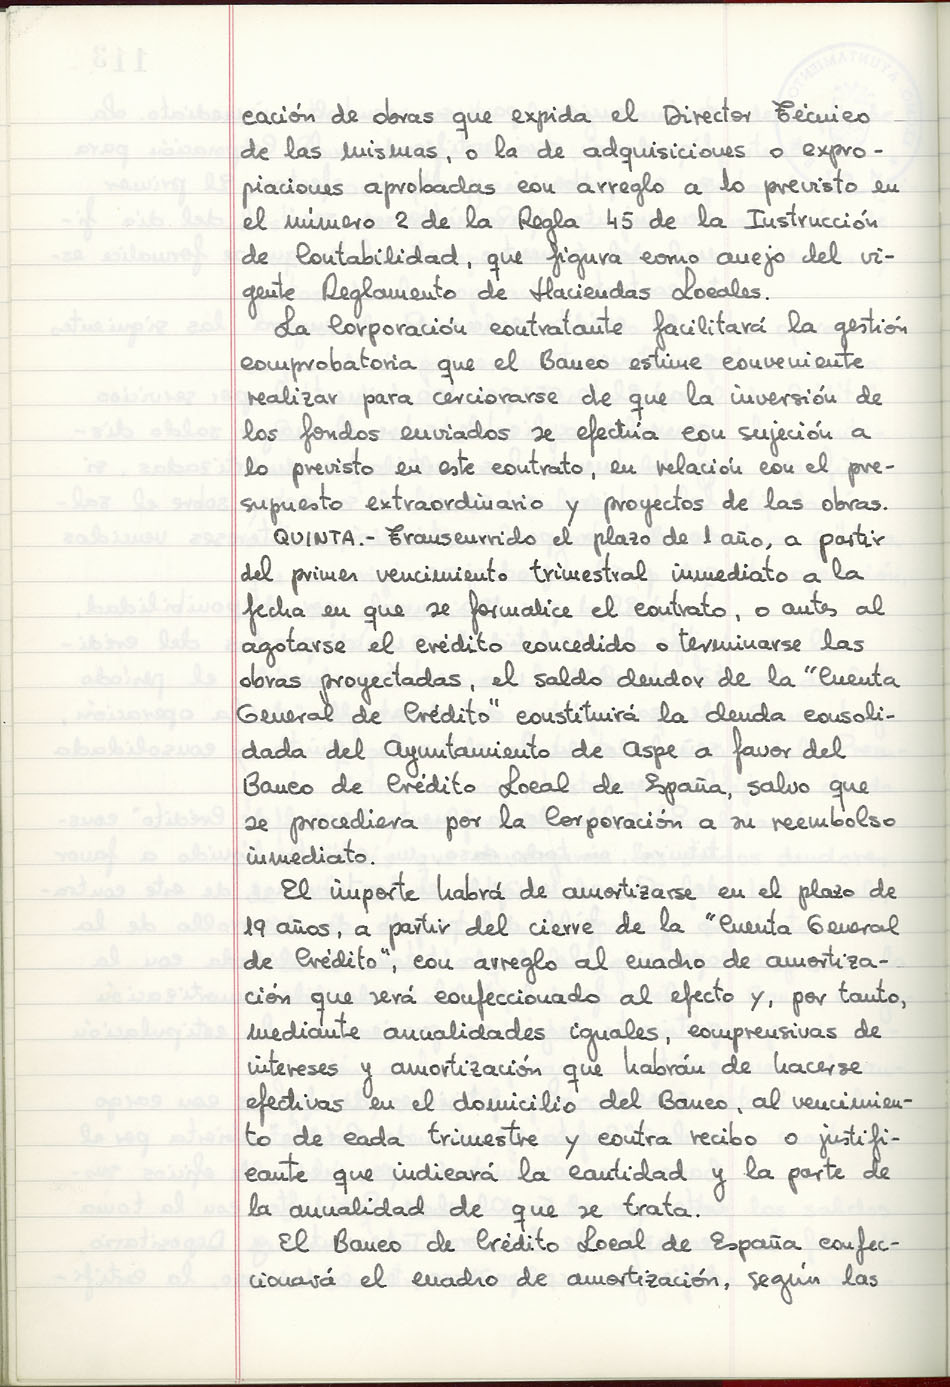 cación de obras que expida el Director Técnico
de las mismas, o la de adquisiciones o expro-
piaciones aprobadas con arreglo a lo previsto en
el número 2 de la Regla 45 de la Instrucción
de Contabilidad, que figura como anejo del vi-
gente Reglamento de Haciendas Locales.
La Corporación contratante facilitará la gestión
comprobatoria que el Banco estime conveniente
realizar para cerciorarse de que la inversión de
los fondos enviados se efectúa con sujeción a
lo previsto en este contrato, en relación con el pre-
supuesto extraordinario y proyectos de las obras.
QUINTA.- Transcurrido el plazo de 1 año, a partir
del primer vencimiento trimestral inmediato a la
fecha en que se formalice el contrato, o antes al
agotarse el crédito concedido o terminarse las
obras proyectadas, el saldo deudor de la "Cuenta
General de Crédito" constituirá la deuda consoli-
dada del Ayuntamiento de Aspe a favor del
Banco de Crédito Local de España, salvo que
se procediera por la Corporación a su reembolso
inmediato.
El importe habrá de amortizarse en el plazo de
19 años, a partir del cierre de la "Cuenta General
de Crédito", con arreglo al cuadro de amortiza-
ción que será confeccionado al efecto y, por tanto,
mediante anualidades iguales, comprensivas de
intereses y amortización que habrán de hacerse
efectivas en el domicilio del Banco, al vencimien-
to de cada trimestre y contra recibo o justifi-
cante que indicará la cantidad y la parte de
la anualidad de que se trata.
El Banco de Crédito Local de España confec-
cionará el cuadro de amortización, según las